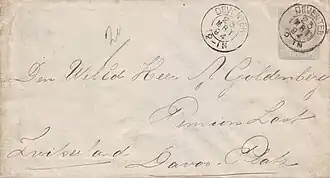 DEVENTER
DEVENTER
Den WelEd Heer A Goldenberg
Pension Laat
Zwitserland Davos-Platz